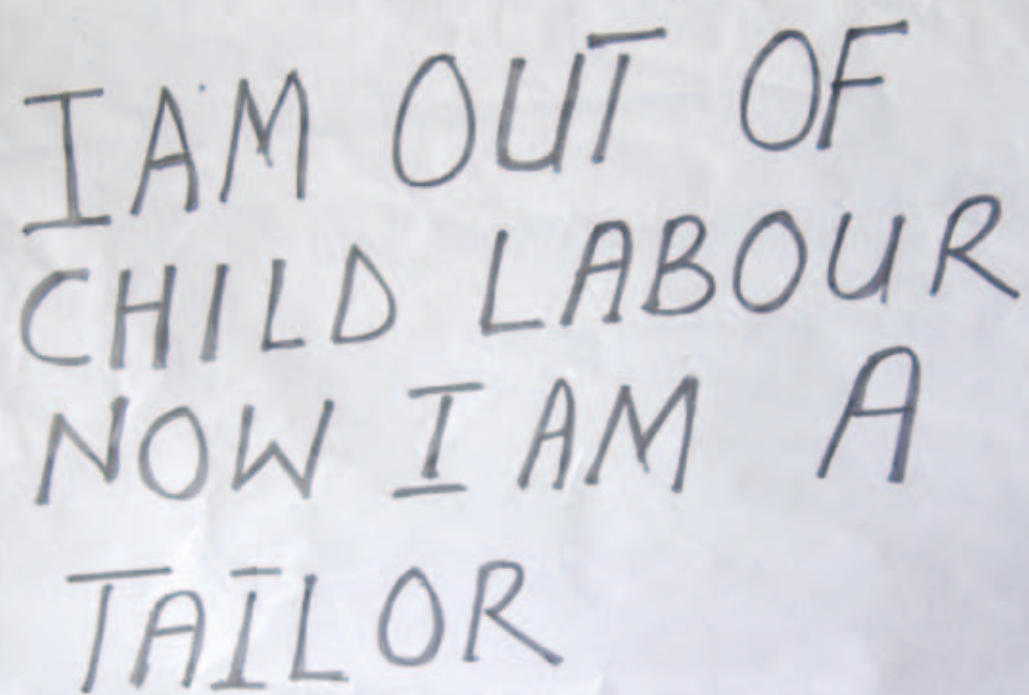 I AM OUT OF
CHILD LABOUR
NOW I AM A
TAILOR